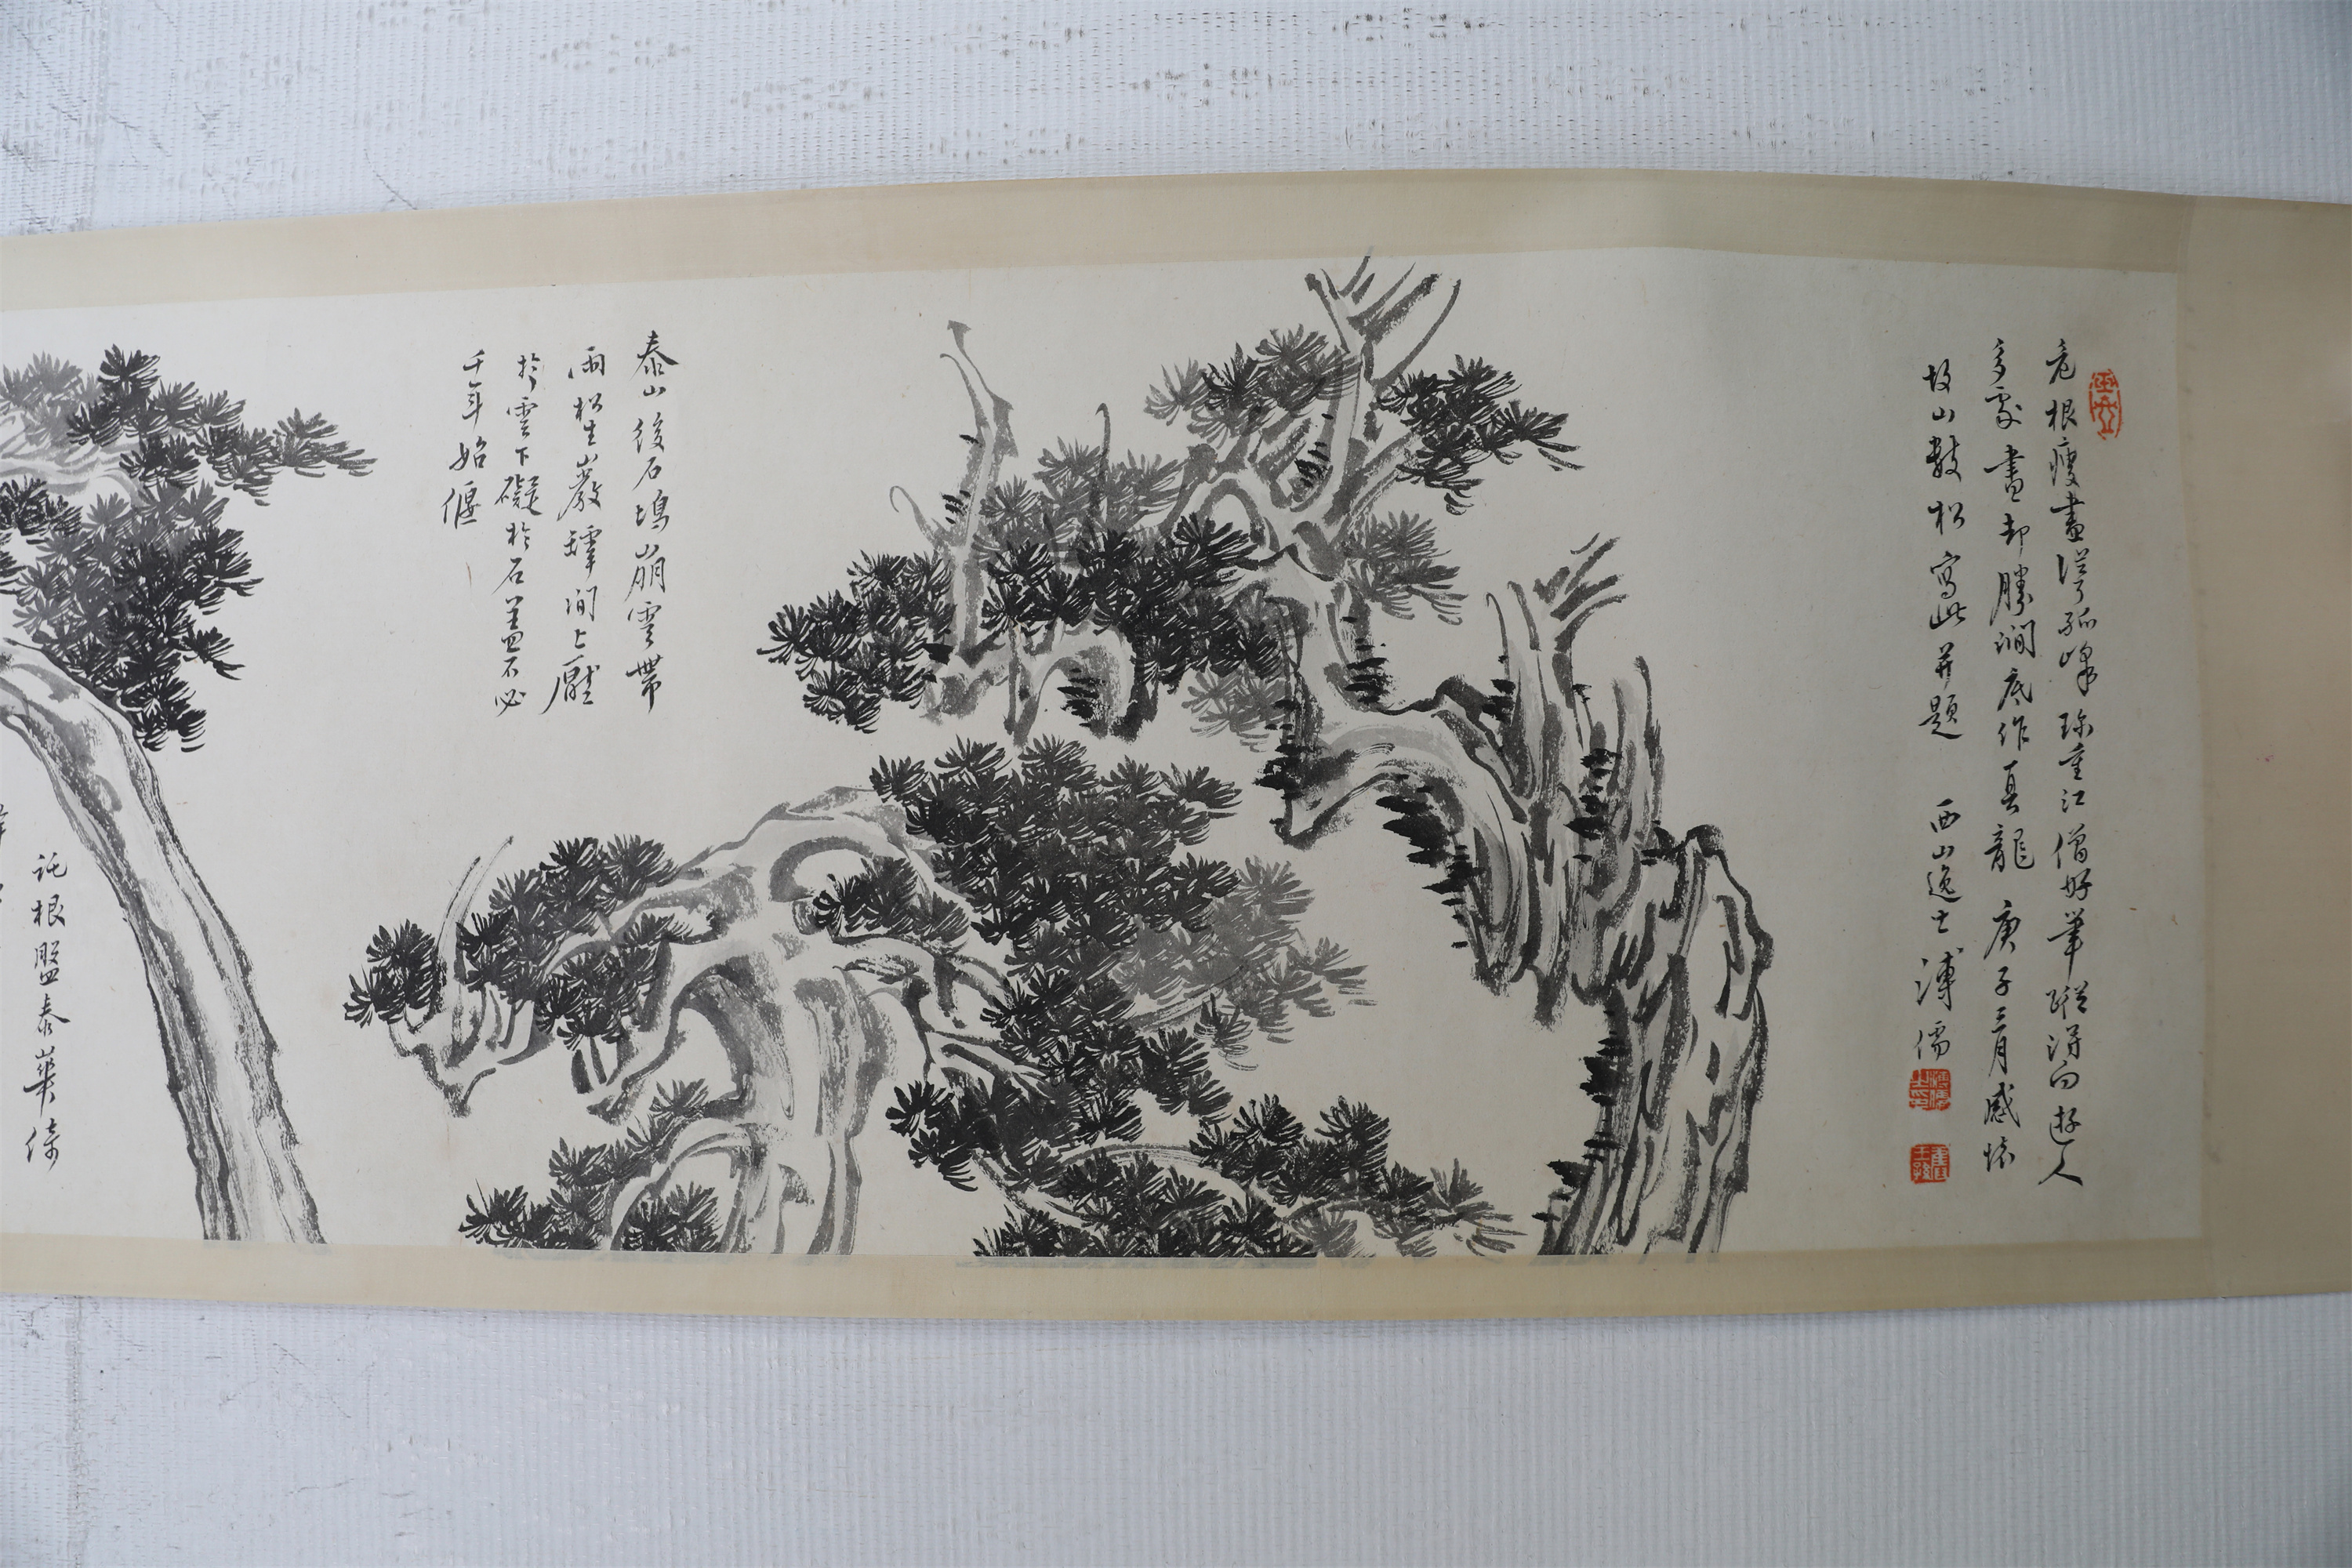 老根瘦盡從孤峰珍重江僧好筆蹤得向遊人
多處畫却勝澗底作真龍庚子三月感懷
故山數松寫此并題 西山逸士溥儒
泰山後石塢崩雲帶
雨松生巖罅間上壓
於雲下礙於石蓋不必
千年始偃
託根盤泰華倚